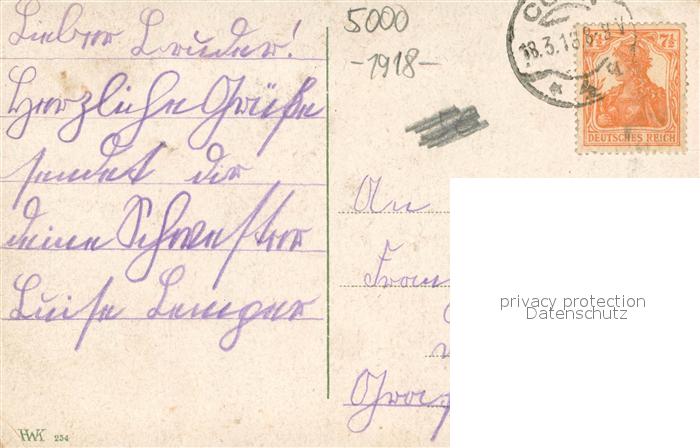 Lieber Bruder!
Herzliche Grüße
sendet dir
deine Schwester
Luise Lemper
5000
-1918-
18.3.18 6-
7½ 7½
DEUTSCHES REICH
An
privacy protection
Datenschutz
HWK 254